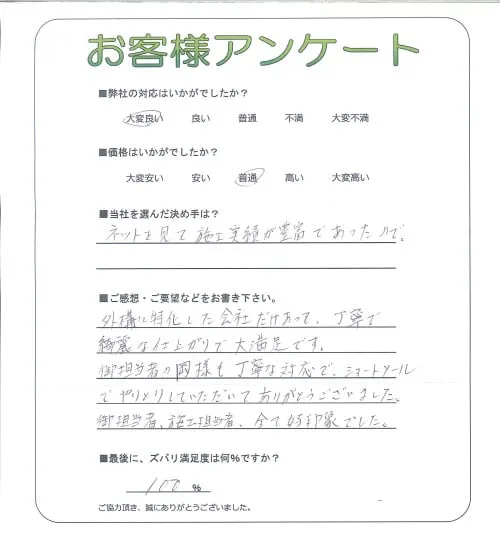 お客様アンケート
■弊社の対応はいかがでしたか？
大変良い 良い 普通 不満 大変不満
■価格はいかがでしたか？
大変安い 安い 普通 高い 大変高い
■当社を選んだ決め手は？
ネットを見て施工実績が豊富であったので。
■ご感想・ご要望などをお書き下さい。
外構に特化した会社だけあって、丁寧で
綺麗な仕上がりで大満足です。
御担当者の 様も丁寧な対応で、ショートメール
でやりとりしていただいてありがとうございました。
御担当者、施工担当者、全て好印象でした。
■最後に、ズバリ満足度は何%ですか？
100 %
ご協力頂き、誠にありがとうございました。